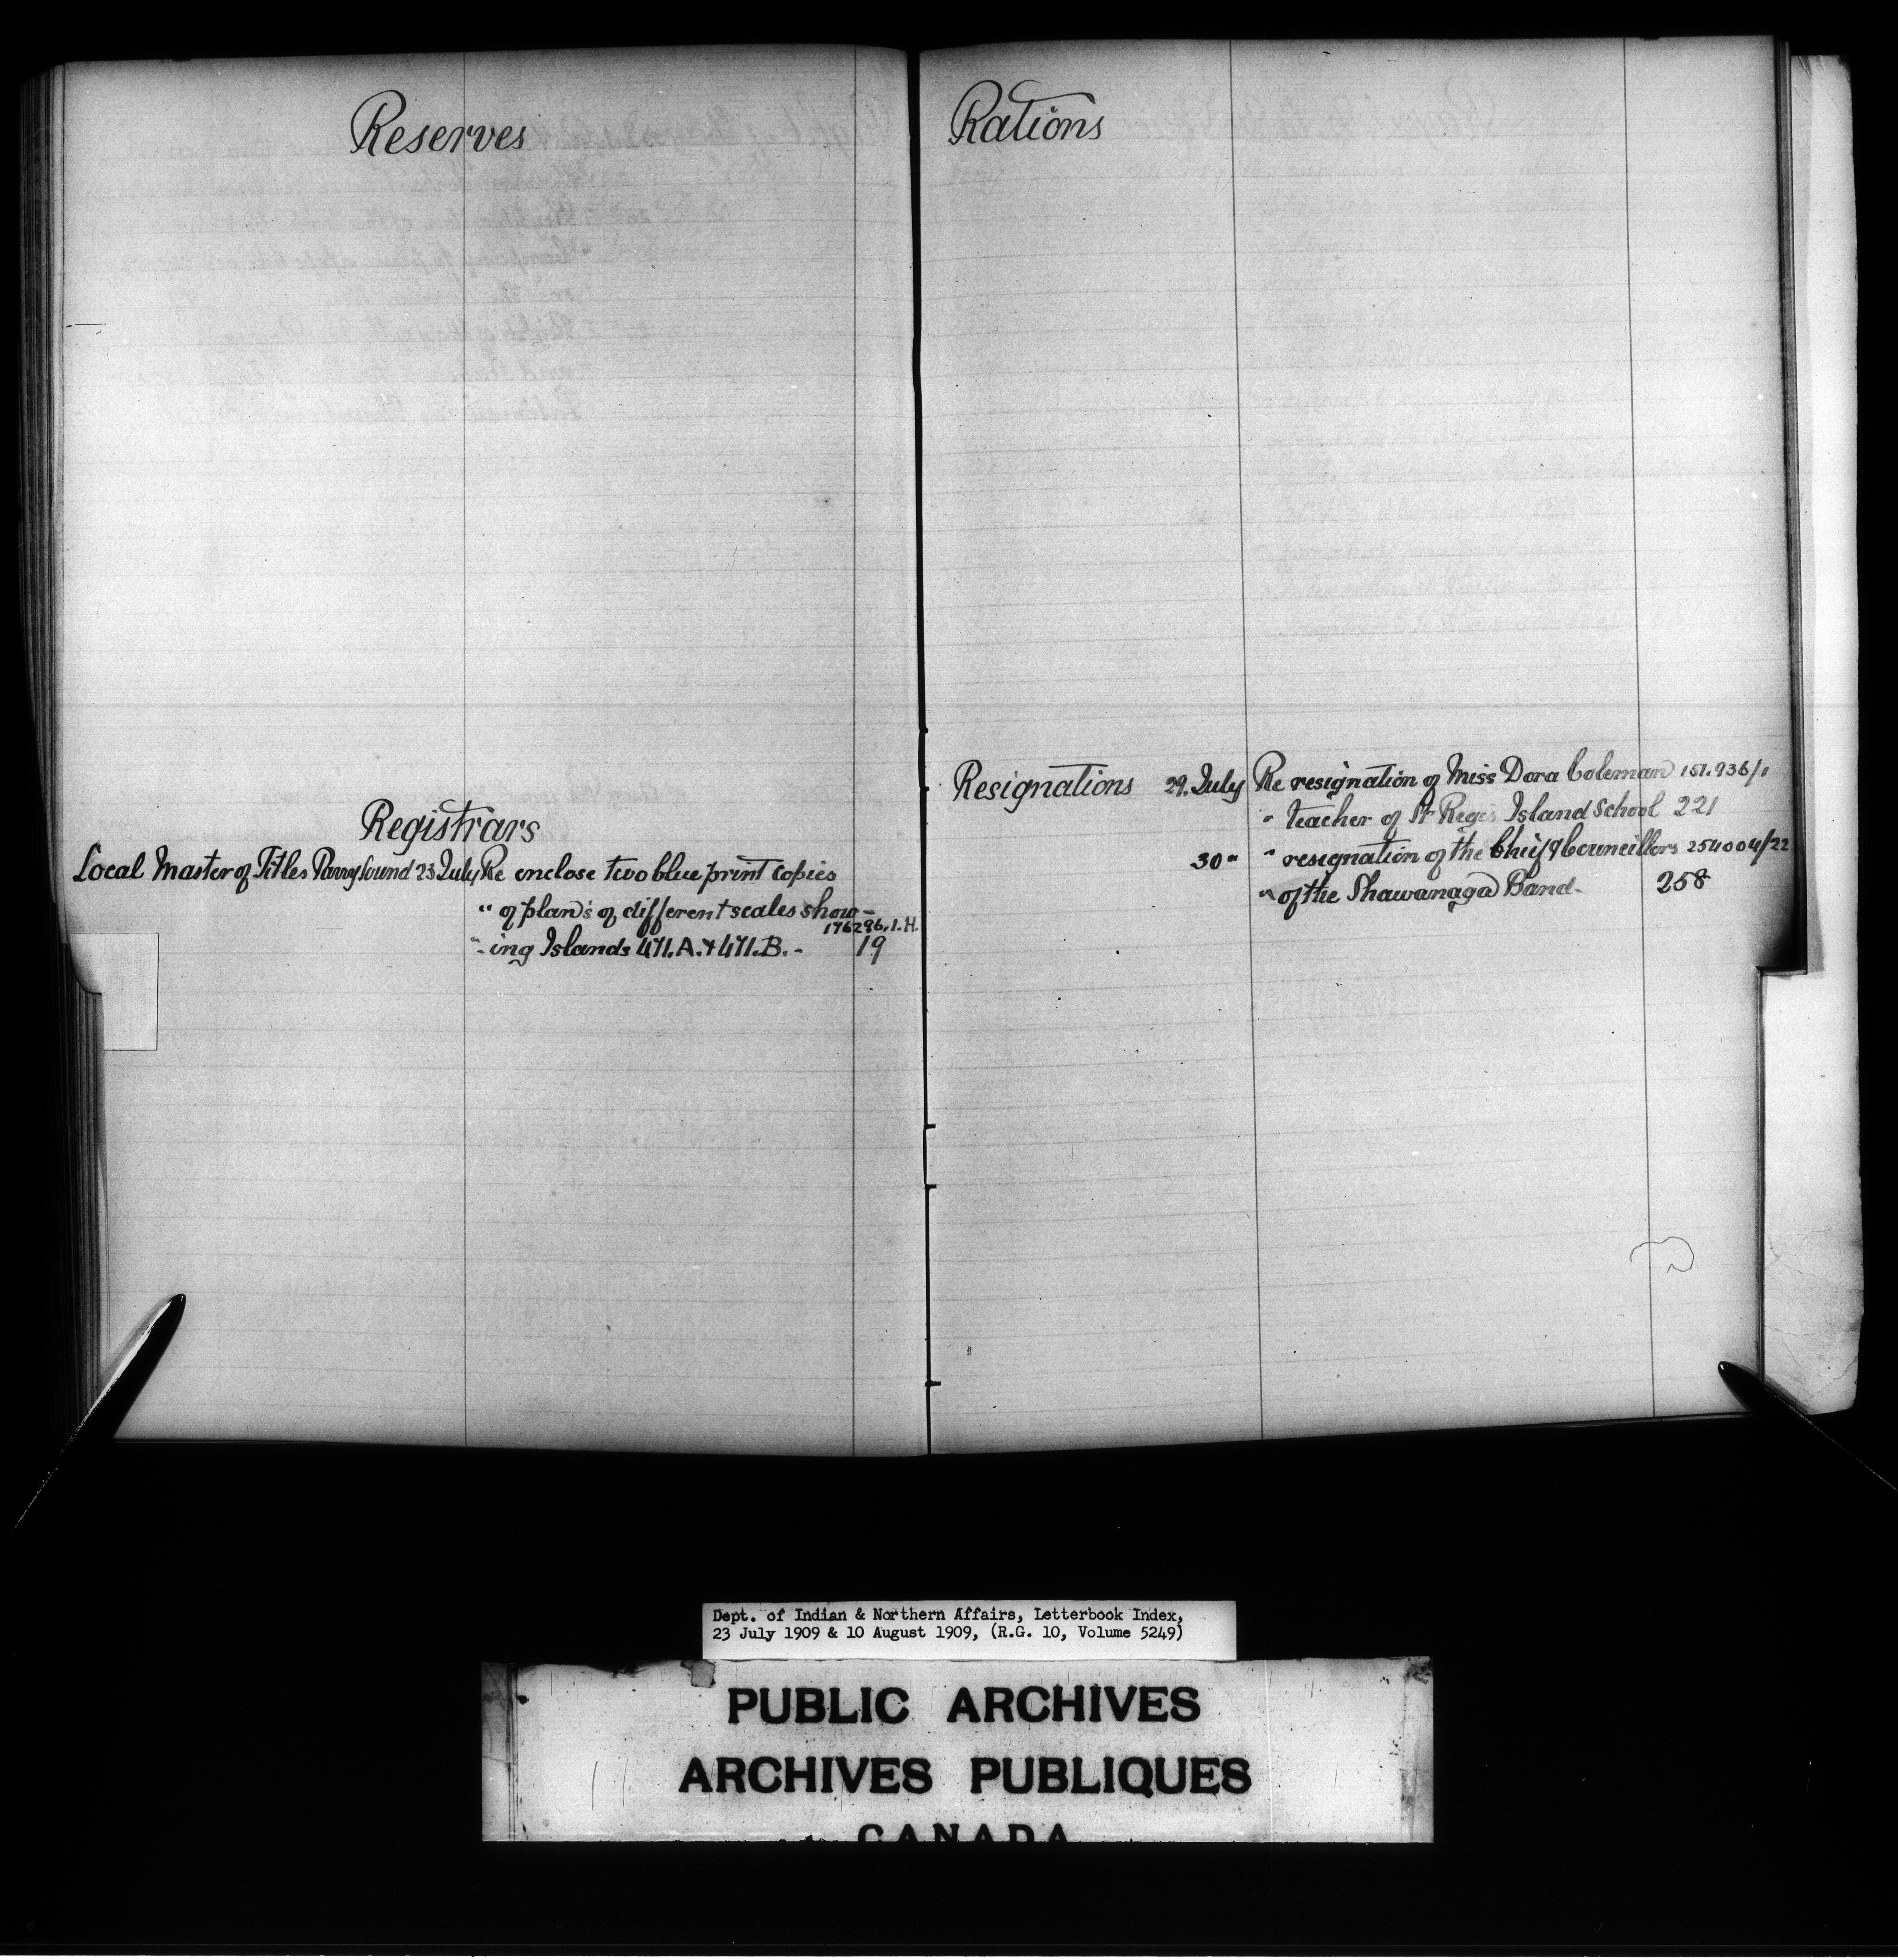 Reserves
Registrars
Local Master of Titles Parry Sound 23 July Re enclose two blue print copies
" of plan's of different scales show-
176296,1.H.
"-ing Islands 471.A. & 471.B. - 19
Rations
Resignations 29. July Re resignation of Miss Dora Coleman 151.936/1
" teacher of St Regis Island School 221
30 " " resignation of the Chief & Councillors 254004/22
" of the Shawanaga Band- 258
Dept. of Indian & Northern Affairs, Letterbook Index,
23 July 1909 & 10 August 1909, (R.G. 10, Volume 5249)
PUBLIC ARCHIVES
ARCHIVES PUBLIQUES
CANADA